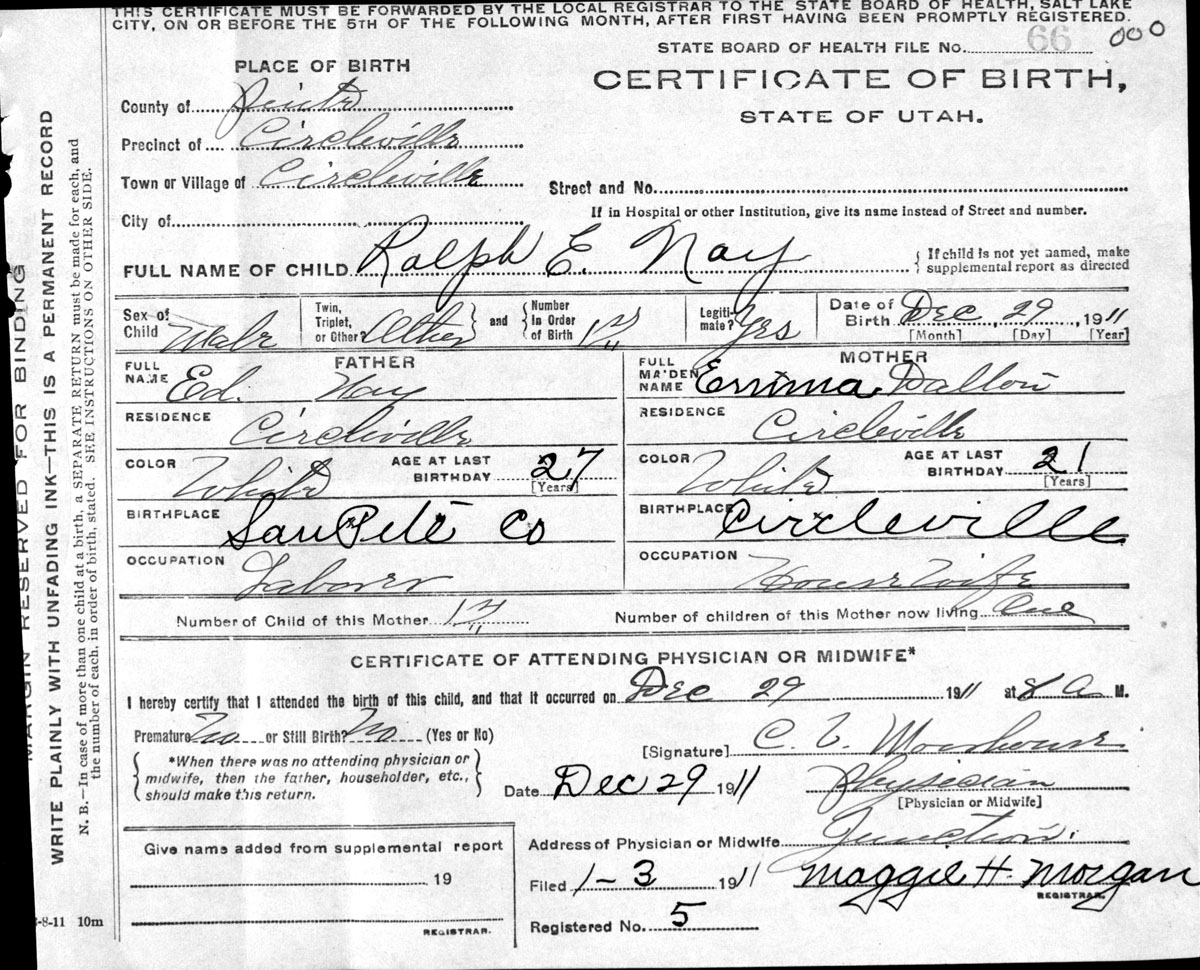 THIS CERTIFICATE MUST BE FORWARDED BY THE LOCAL REGISTRAR TO THE STATE BOARD OF HEALTH, SALT LAKE
CITY, ON OR BEFORE THE 5TH OF THE FOLLOWING MONTH, AFTER FIRST HAVING BEEN PROMPTLY REGISTERED.
STATE BOARD OF HEALTH FILE No. 66 000
PLACE OF BIRTH
CERTIFICATE OF BIRTH,
STATE OF UTAH.
County of Piute
Precinct of Circleville
Town or Village of Circleville
Street and No.
City of
If in Hospital or other Institution, give its name instead of Street and number.
FULL NAME OF CHILD Ralph E. Nay
If child is not yet named, make
supplemental report as directed
Sex of Child Male
Twin, Triplet, or Other
and
Number in Order of Birth 1
Legitimate? Yes
Date of Birth Dec, 29, 1911
[Month] [Day] [Year]
FATHER
FULL NAME Ed. Nay
RESIDENCE Circleville
COLOR White
AGE AT LAST BIRTHDAY 27
[Years]
BIRTHPLACE SanPete Co
OCCUPATION Laborer
MOTHER
FULL MAIDEN NAME Emma Dalton
RESIDENCE Circleville
COLOR White
AGE AT LAST BIRTHDAY 21
[Years]
BIRTHPLACE Circleville
OCCUPATION House Wife
Number of Child of this Mother 1
Number of children of this Mother now living One
CERTIFICATE OF ATTENDING PHYSICIAN OR MIDWIFE*
I hereby certify that I attended the birth of this child, and that it occurred on Dec 29 1911 at 8 a M.
Premature No or Still Birth? No (Yes or No)
*When there was no attending physician or
midwife, then the father, householder, etc.,
should make this return.
[Signature] C. 
Date Dec 29 1911
Physician
[Physician or Midwife]
Address of Physician or Midwife Junction.
Give name added from supplemental report
19
REGISTRAR.
Filed 1-3 1911 Maggie H. Morgan
REGISTRAR.
Registered No. 5
-8-11 10m
MARGIN RESERVED FOR BINDING
WRITE PLAINLY WITH UNFADING INK—THIS IS A PERMANENT RECORD
N. B.—In case of more than one child at a birth, a SEPARATE RETURN must be made for each, and
the number of each, in order of birth, stated. SEE INSTRUCTIONS ON OTHER SIDE.